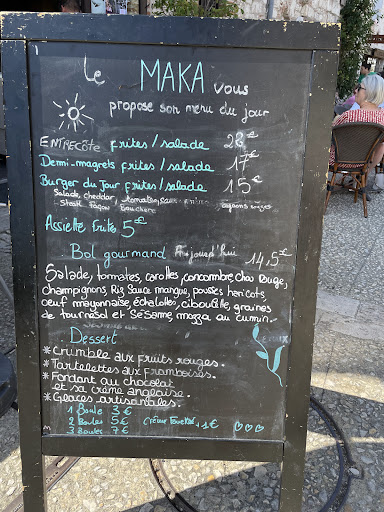 Le MAKA vous
propose son menu du jour
ENTRECôte frites/salade 28€
Demi-magrets frites/salade 17€
Burger du Jour frites/salade 15€
Salade, cheddar, tomates,
Steak façon Bouchère oignons rouges
Assiette frites 5€
Bol gourmand Aujourd'hui 14,5€
Salade, tomates, carottes, concombre, chou Rouge,
champignons, Riz, sauce mangue, pousses haricots,
oeuf mayonnaise, échalottes, ciboulette, graines
de tournesol et Sésame, mozza au cumin.
Dessert
* Crumble aux fruits rouges.
* Tartelettes aux framboises.
* Fondant au chocolat
et sa crème anglaise.
* Glaces artisanales.
1 Boule 3€
2 Boules 5€ Crème Fouettée + 1€
3 Boules 7€